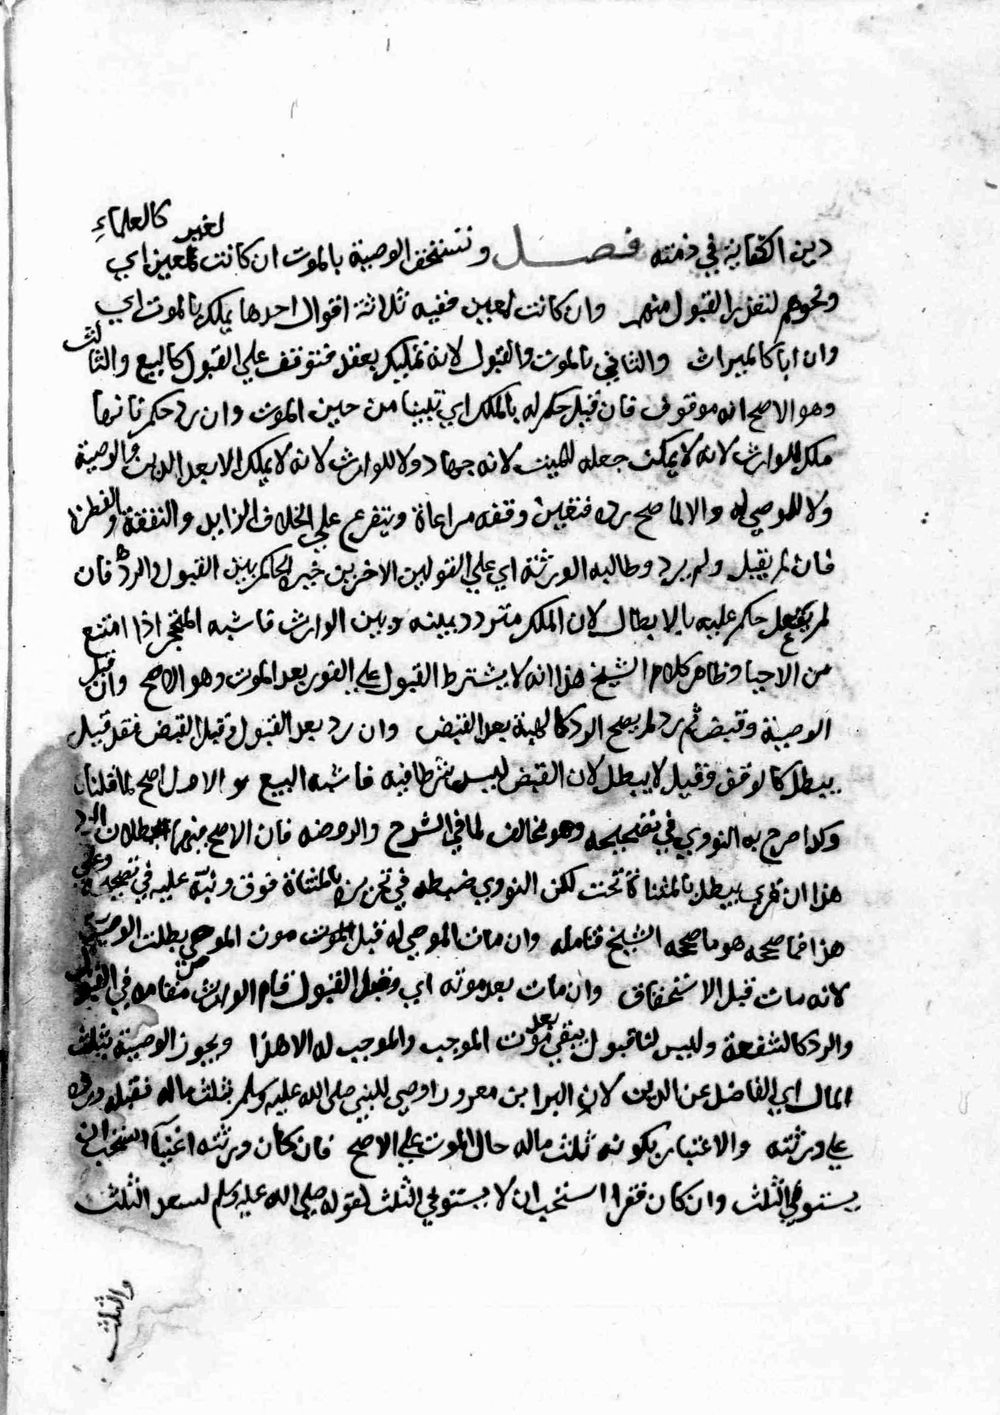 دين الكفاية في ذمته فصل وتستحق الوصية بالموت ان كانت لغير معين اي كالعلماء
ونحوهم لتعذر القبول منهم وان كانت لمعين ففيه ثلاثة اقوال احدها يملك بالموت اي
وان ابا كالميراث والثاني بالموت والقبول لانه تمليك بعقد فتوقف علي القبول كالبيع والثالث
وهو الاصح انه موقوف فان قبل حكم له بالملك اي تبينا من حين الموت وان رد حكم بانها
ملك للوارث لانه لا يمكن جعله للميت لانه جماد ولا للوارث لانه لا يملك الا بعد الدين والوصية
ولا للموصي له والا لما صح رده فتعين وقفه مراعاة ويتفرع علي الخلاف الزايد والنفقة والفطرة
فان لم يقبل ولم يرد وطالبه الورثة اي علي القولين الاخرين خيره الحاكم بين القبول والرد فان
لم يفعل حكم عليه بالابطال لان الملك متردد بينه وبين الوارث فاشبه المتحجر اذا امتنع
من الاحيا وظاهر كلام الشيخ هذا انه لا يشترط القبول علي الفور بعد الموت وهو الاصح وان قبل
الوصية وقبض ثم رد لم يصح الرد كالهبة بعد القبض وان رد بعد القبول وقبل القبض فقد قيل
يبطل كالوقف وقيل لا يبطل لان القبض ليس شرطا فيه فاشبه البيع والاول اصح لما قلناه
وكذا صرح به النووي في تصحيحه وهو مخالف لما في الشرح والروضة فان الاصح منهما بطلان الرد
هذا ان قري يبطل بالمثناة تحت لكن النووي ضبطه في تحريره بالمثناة فوق ونبه عليه في تصحيحه وعلي
هذا فما صححه هو ما صححه الشيخ فتامله وان مات الموصي له قبل موت الموصي بطلت الوصية
لانه مات قبل الاستحقاق وان مات بعد موته اي وقبل القبول قام الوارث مقامه في القبول
والرد كالشفعة وليس لنا قبول يبقي بعد موت الموجب والموجب له الا هذا ويجوز الوصية بثلث
المال اي الفاضل عن الدين لان البرا بن معرور اوصي للنبي صلي الله عليه وسلم بثلث ماله فقبله ورده
علي ورثته والاعتبار بكونه ثلث ماله حال الموت علي الاصح فان كان ورثته اغنيا استحب ان
يستوفي الثلث وان كان فقرا استحب ان لا يستوفي الثلث لقوله صلي الله عليه وسلم لسعد الثلث
والثلث